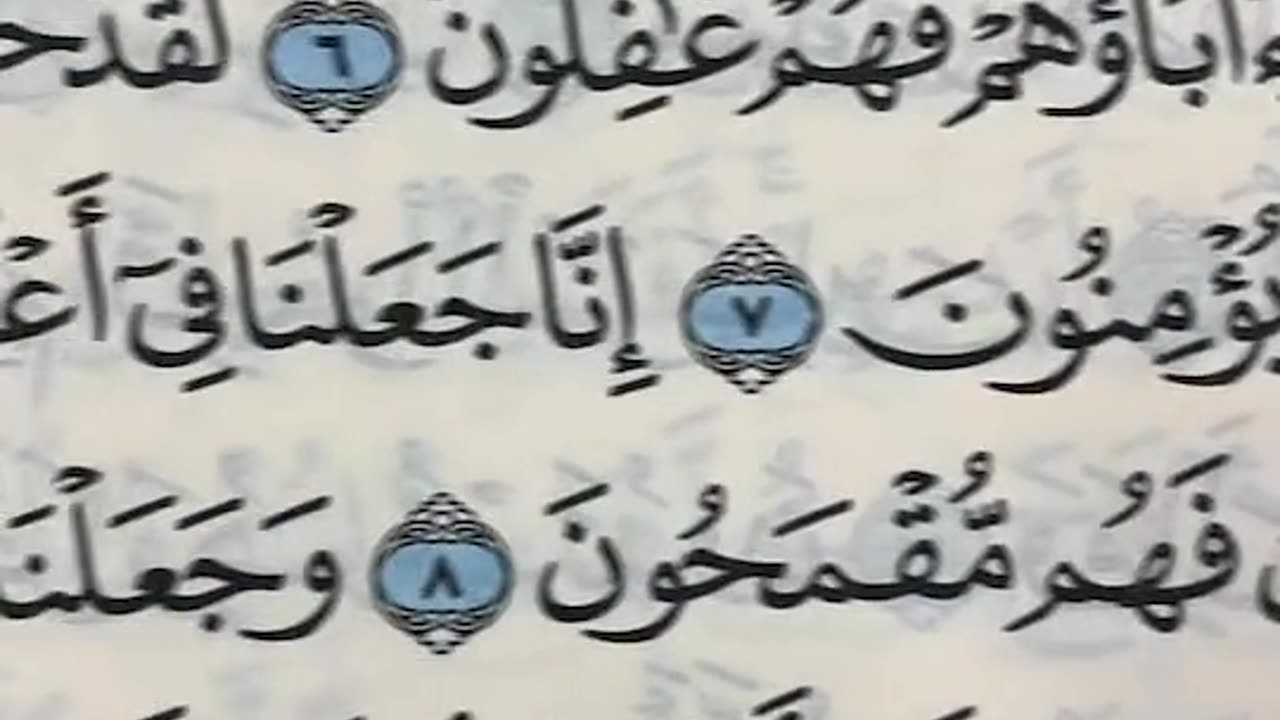 ءَابَاؤُهُمْ فَهُمْ غَٰفِلُونَ ٦ لَقَدْ حَ
يُؤْمِنُونَ ٧ إِنَّا جَعَلْنَا فِىٓ أَعْ
فَهُم مُّقْمَحُونَ ٨ وَجَعَلْنَا